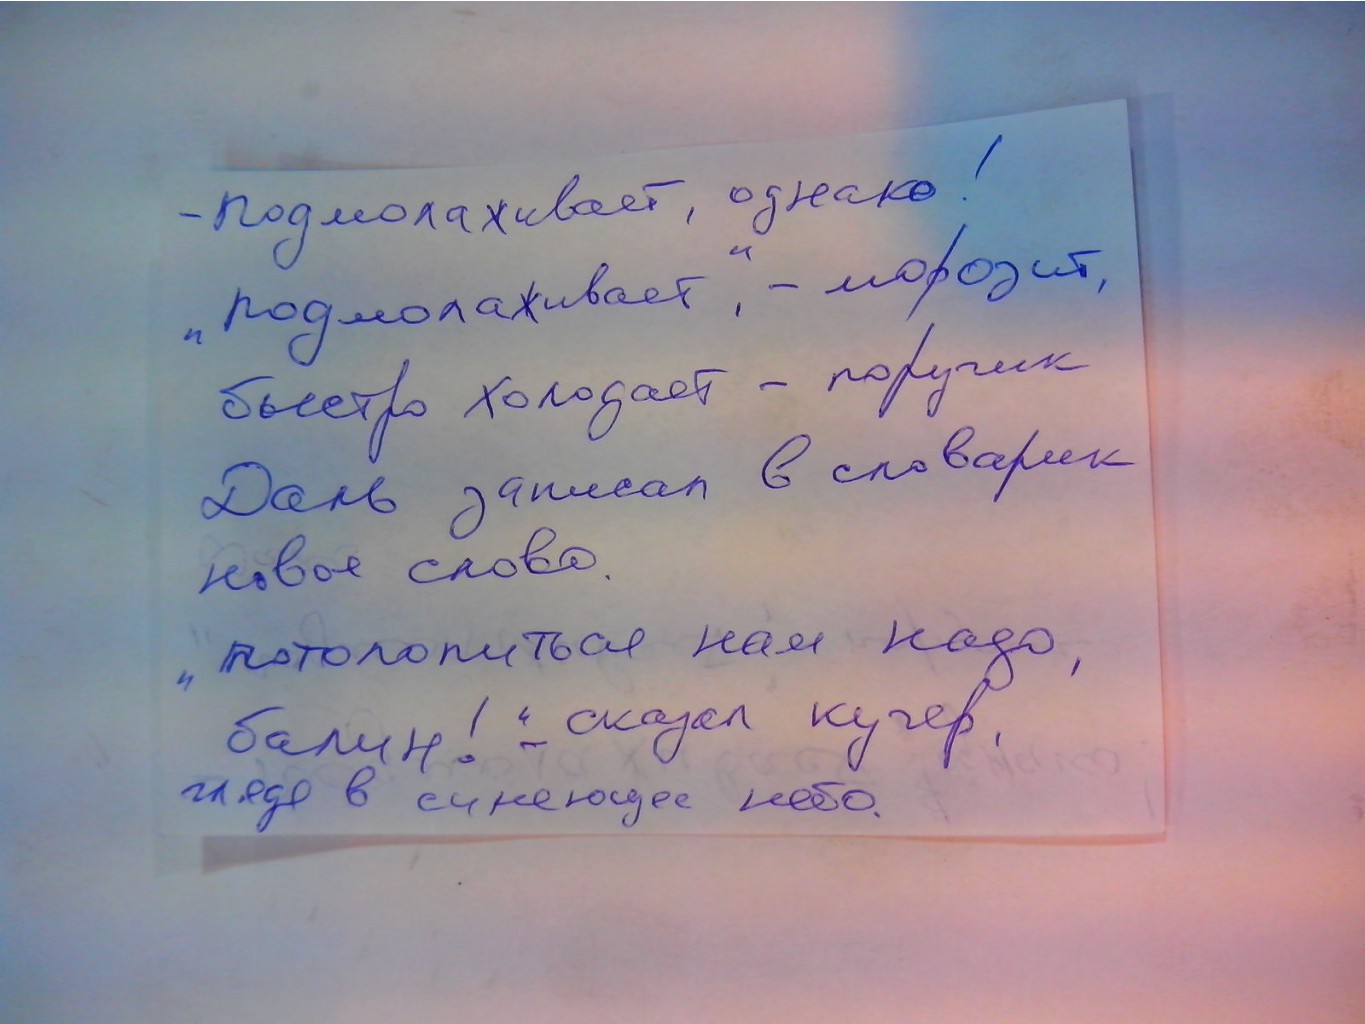 - Подмолаживает, однако!
„Подмолаживает“, - морозит,
быстро холодает - поручик
Даль записал в словарик
новое слово.
„Потолопиться нам надо,
балин!“ - сказал кучер,
глядя в синеющее небо.